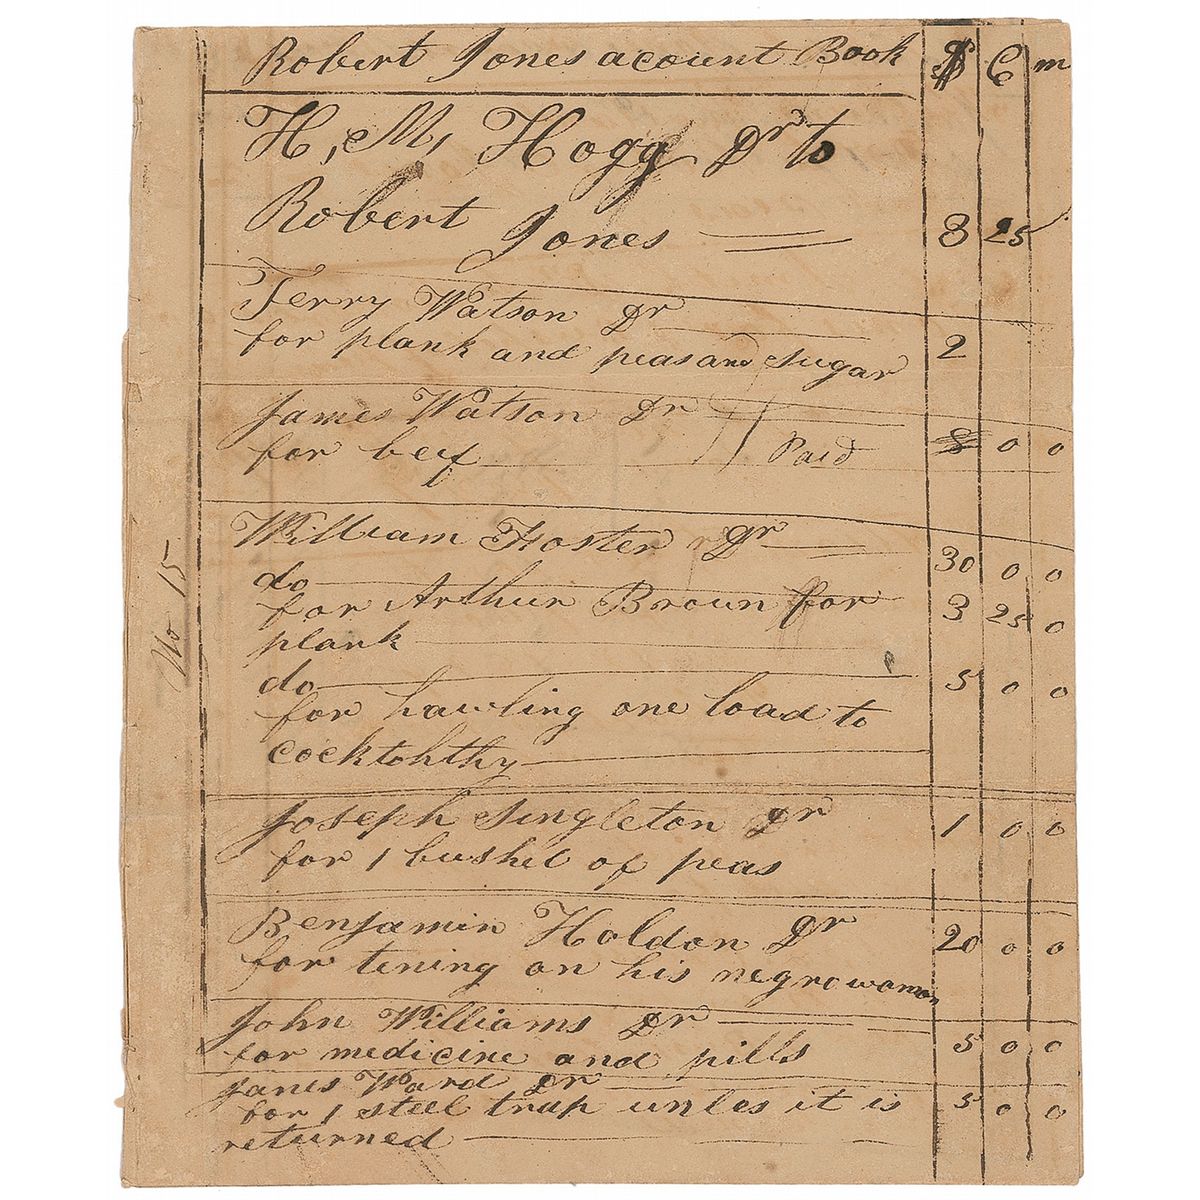 Robert Jones acount Book $ C m
H, M, Hogg Dr to
Robert Jones 8 25
Terry Watson Dr
for plank and peas and sugar 2
James Watson Dr
for beef Paid 8 0 0
William Foster Dr
do 30 0 0
for Arthur Broun for 3 25 0
plank
do 5 0 0
for hawling one load to
cocktohthy
Joseph Singleton Dr 1 0 0
for 1 bushel of peas
Benjamin Holdon Dr 20 0 0
for tening on his negro woman
John Williams Dr
for medicine and pills 5 0 0
James Ward Dr
for 1 steel trap unles it is 5 0 0
returned
No 15